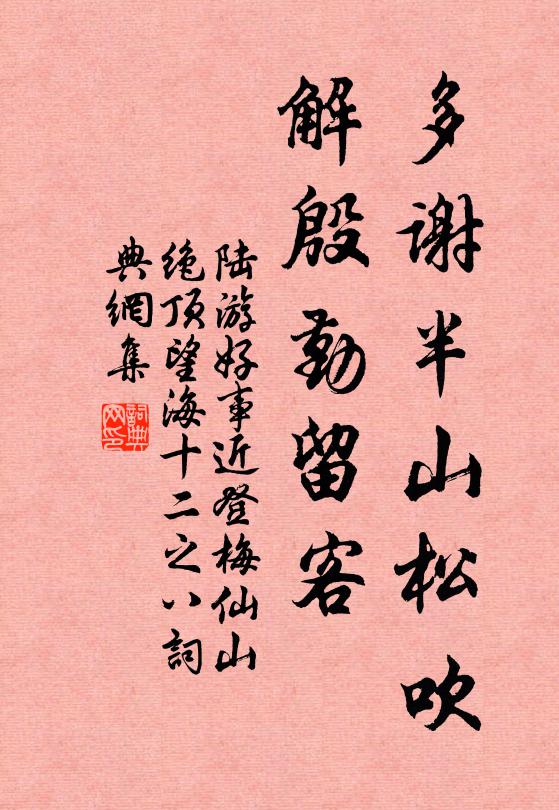 多谢半山松吹
解殷勤留客
陆游好事近登梅仙山
绝顶望海十二之八詞
典網集
詞典
网印